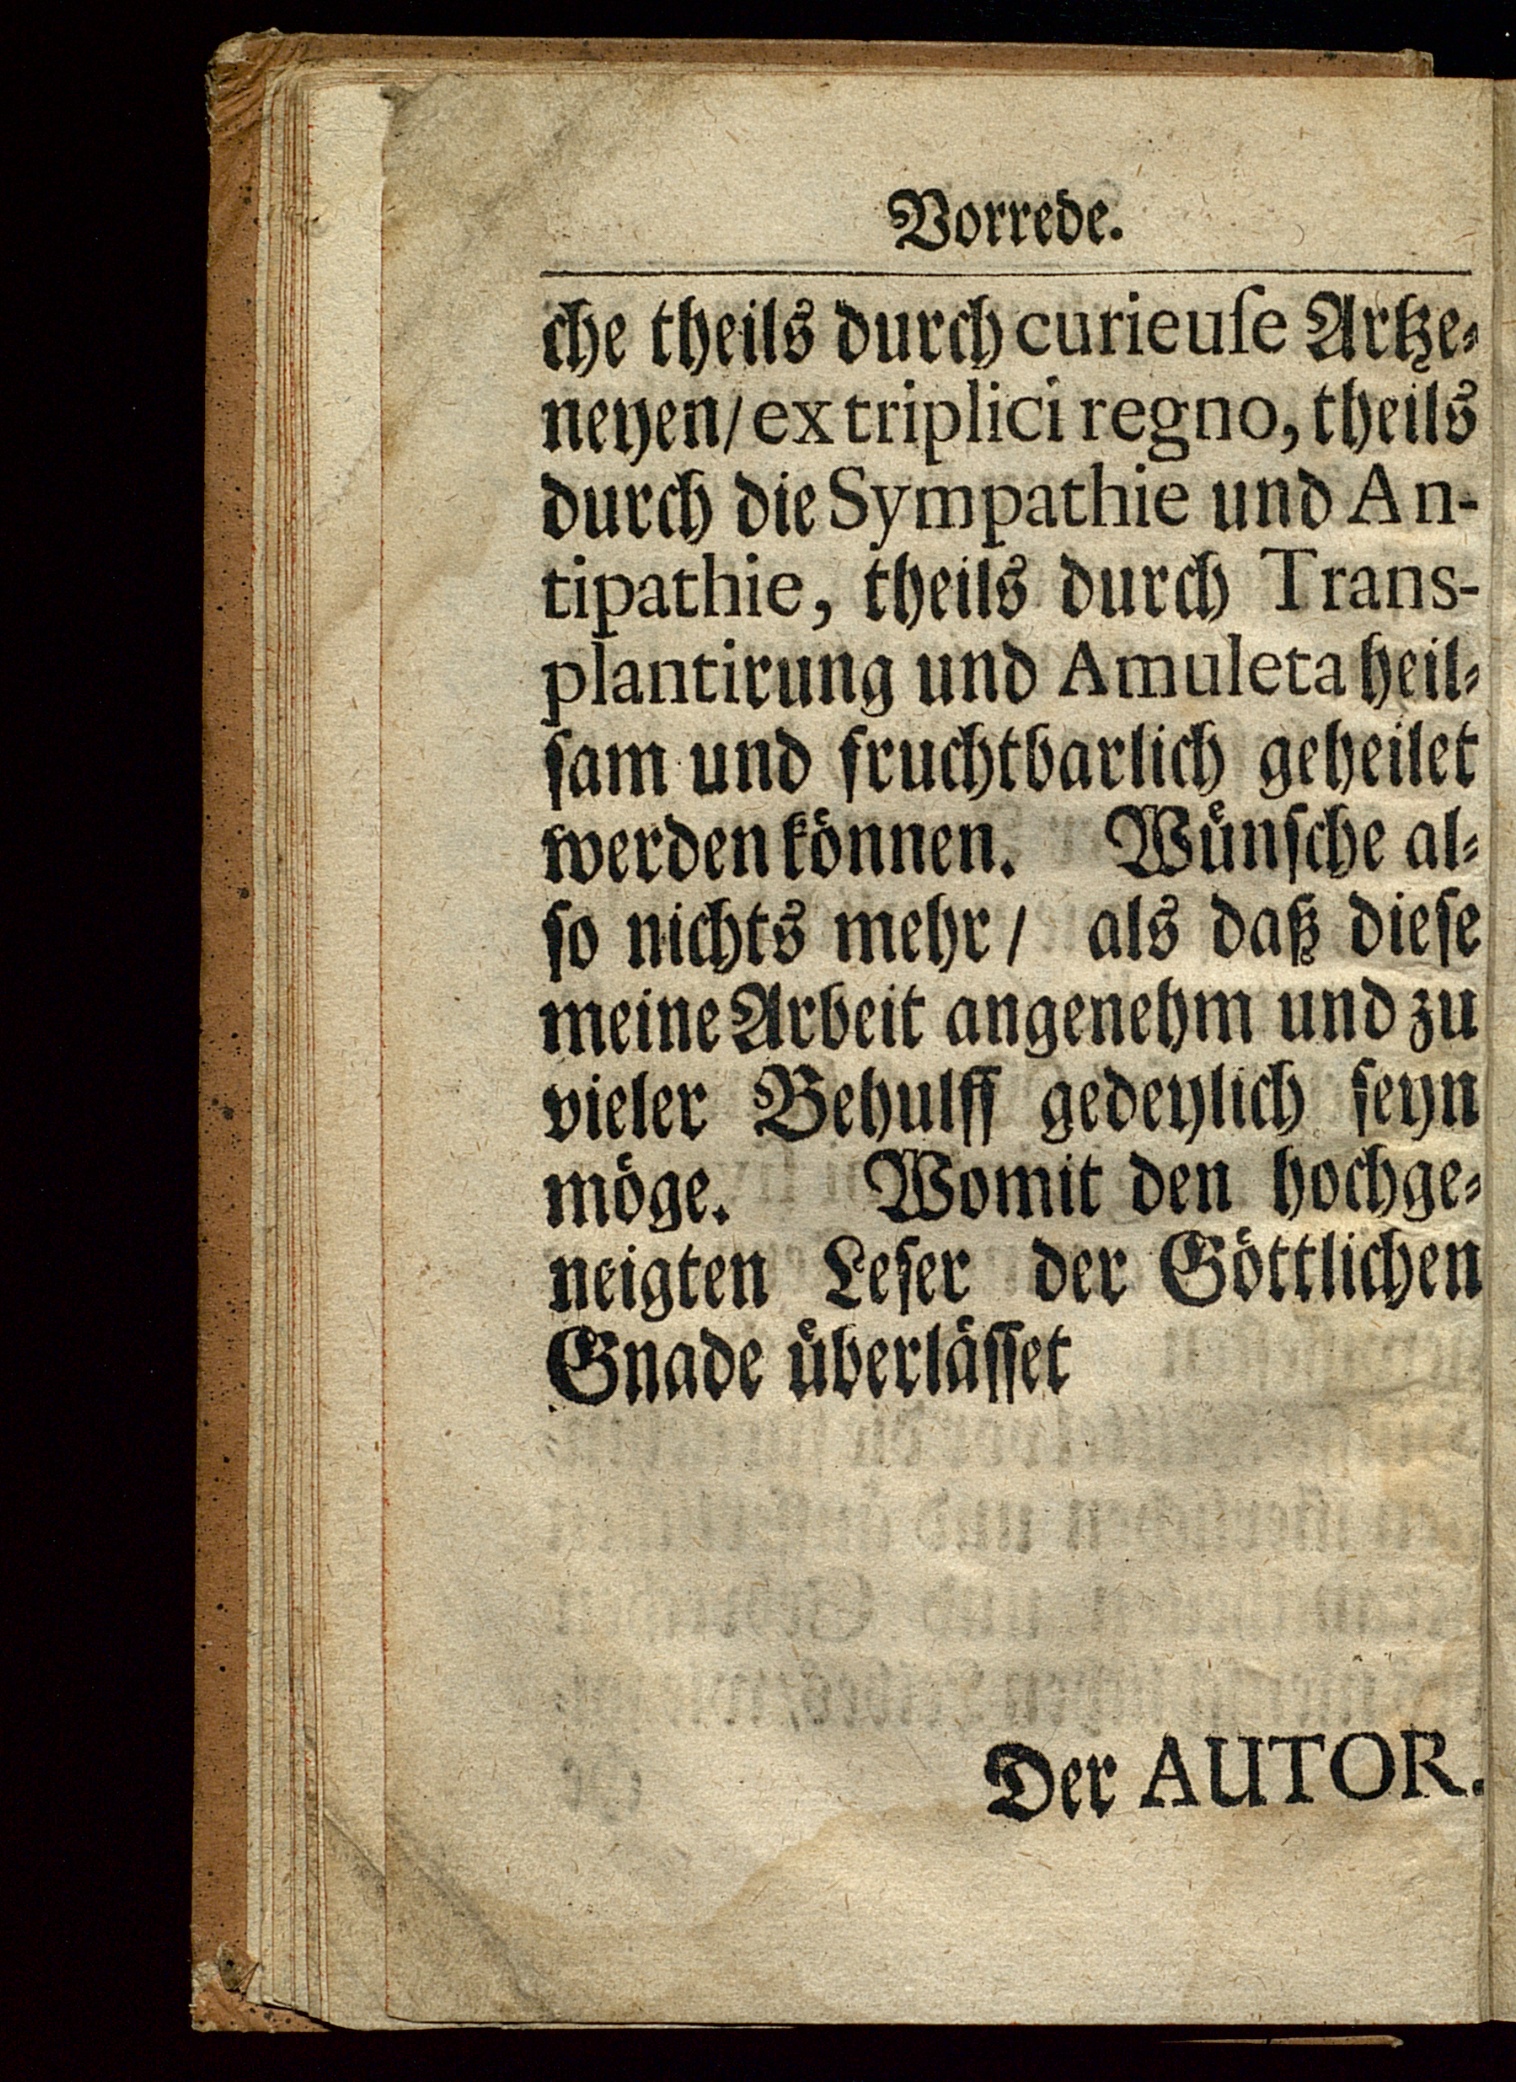 Vorrede.
che theils durch curieuſe Artze⸗
neyen/ ex triplici regno, theils
durch die Sympathie und An-
tipathie, theils durch Trans-
plantirung und Amuleta heil⸗
ſam und fruchtbarlich geheilet
werden koͤnnen. Wuͤnſche al⸗
ſo nichts mehr/ als daß dieſe
meine Arbeit angenehm und zu
vieler Behulff gedeylich ſeyn
moͤge. Womit den hochge⸗
neigten Leſer der Goͤttlichen
Gnade uͤberlaͤſſet
Der AUTOR.